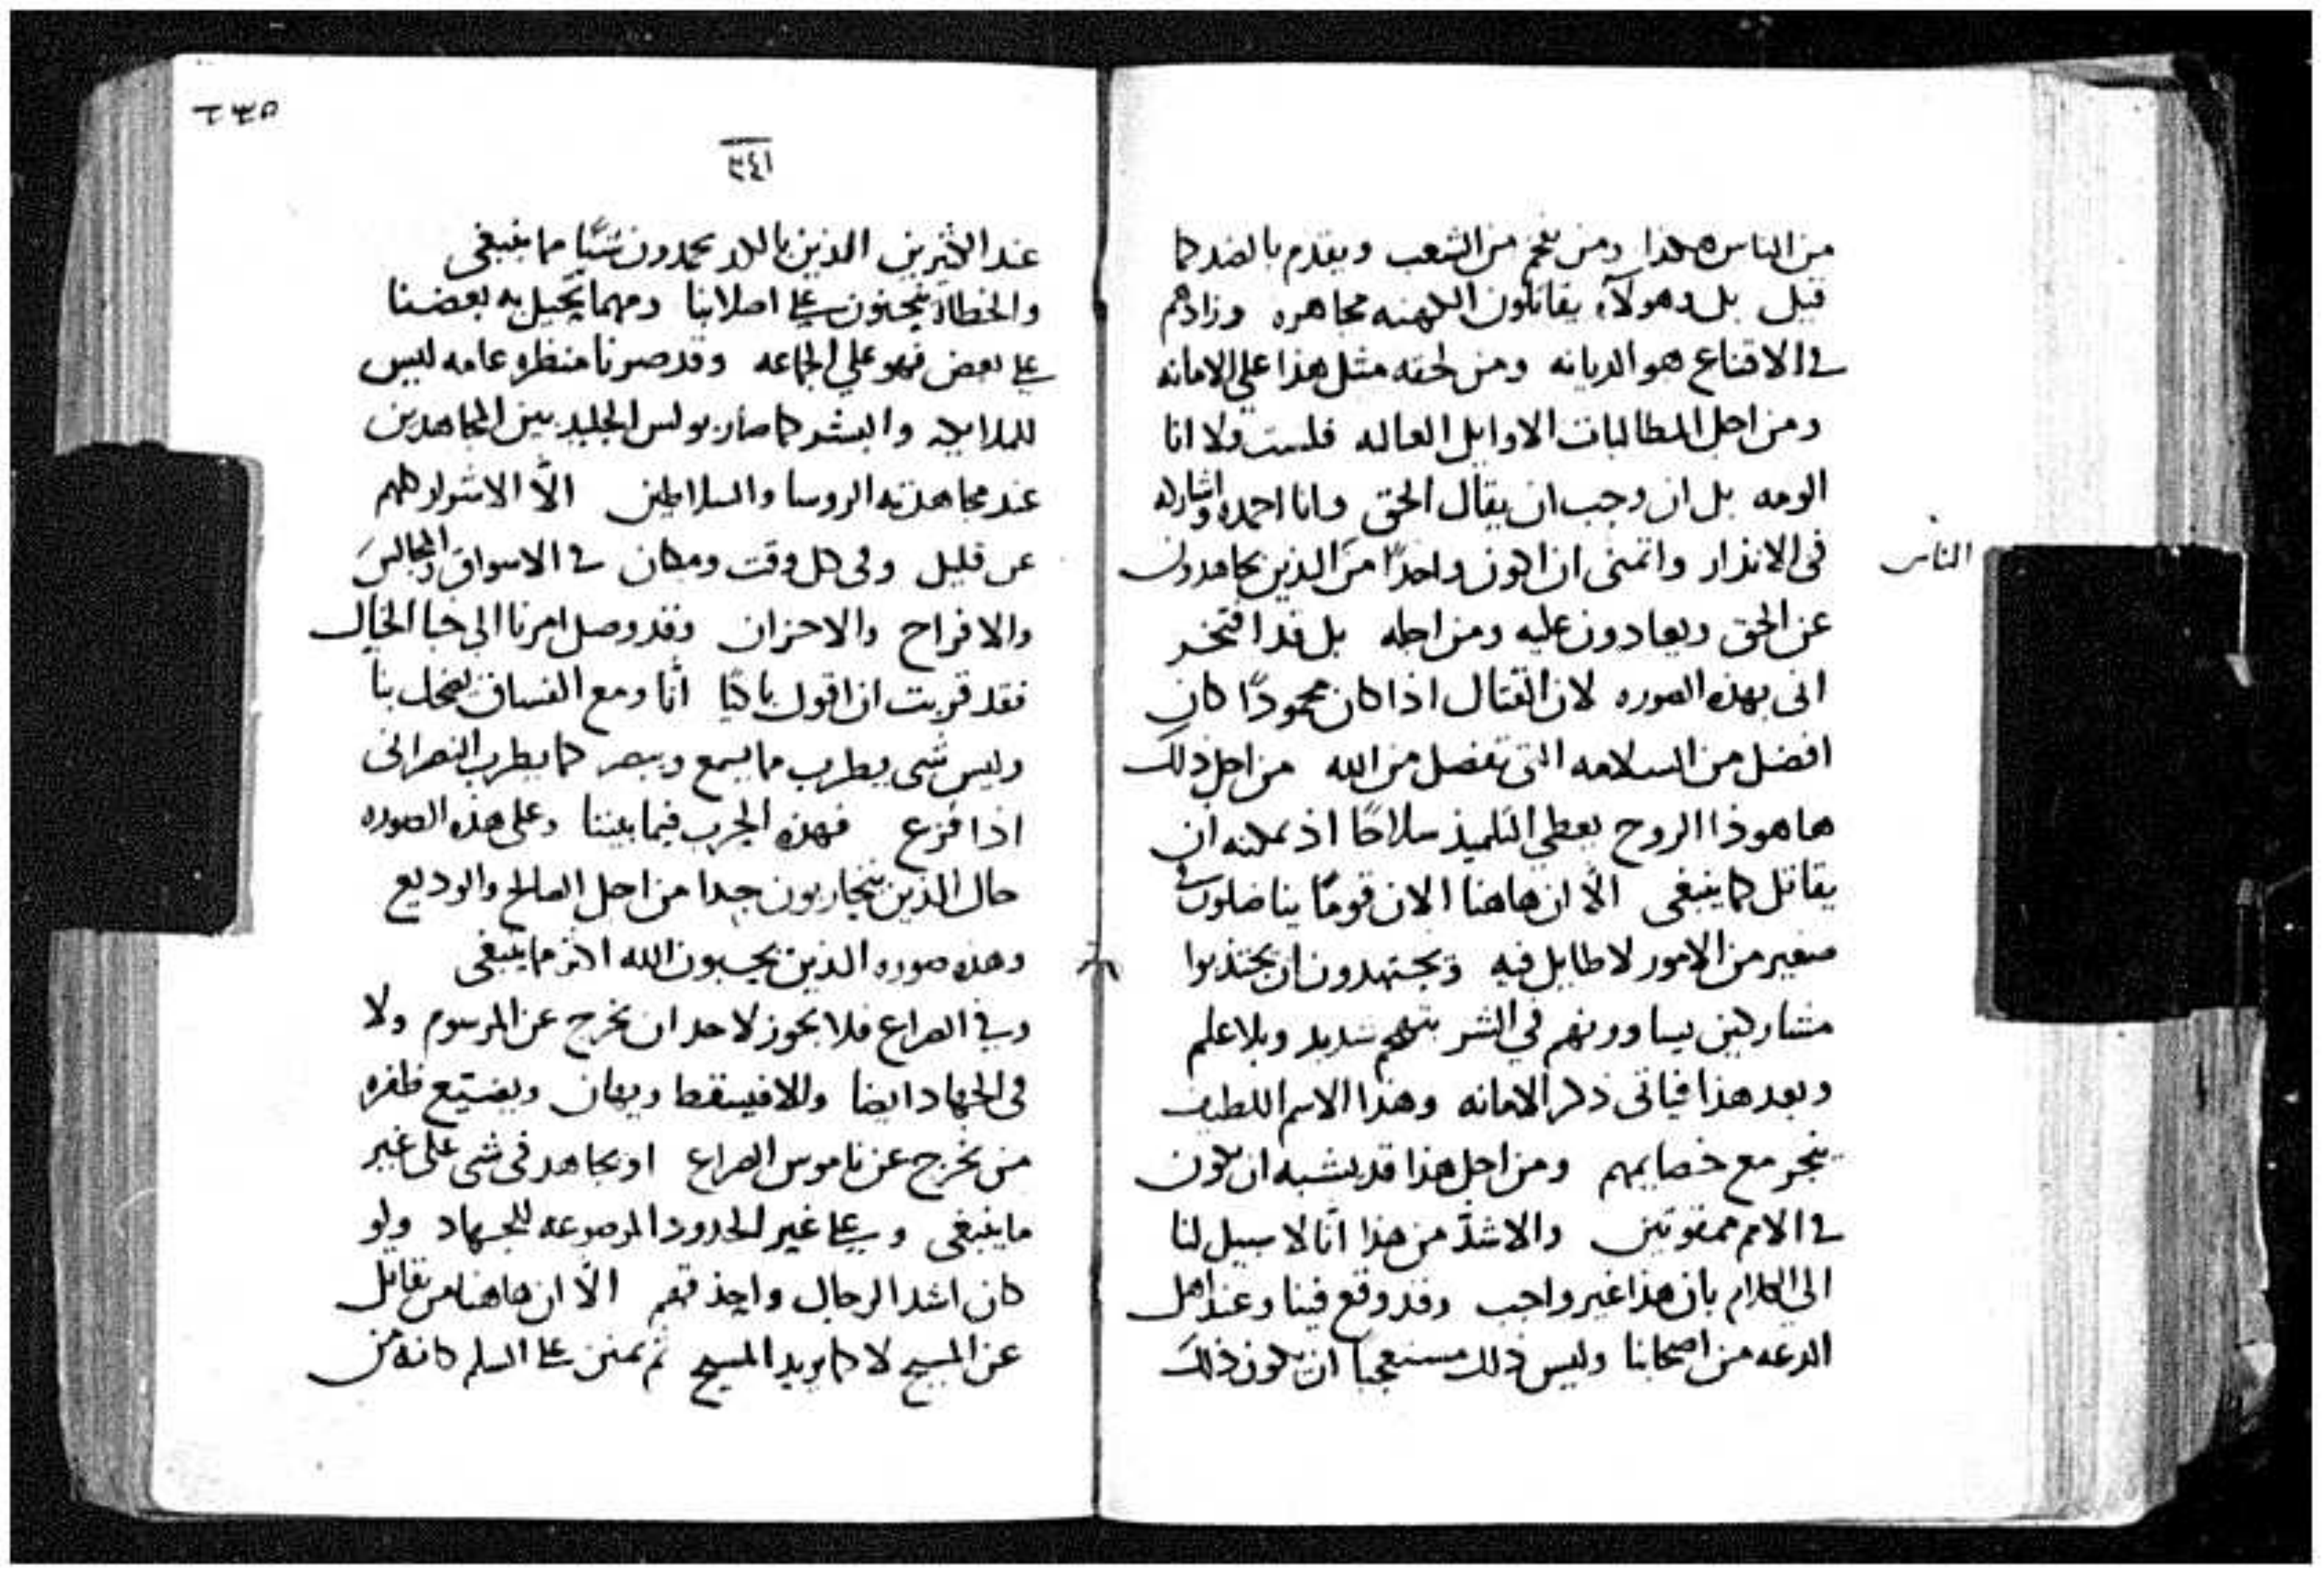 من الناس هكذا ومن نجم من الشعب ويقدم بالضد كما
قيل بل وهولآء يقاتلون الكهنه مجاهره وزادهم
في الاقناع هو الديانه ومن لحقه مثل هذا على الامانه
ومن اجل المطالبات الاوايل العاله فلست ولا انا
الومه بل ان وجب ان يقال الحق وانا احمده واشاركه
الناس
في الانذار واتمنى ان اكون واحدًا من الذين يجاهدون
عن الحق ويعادون عليه ومن اجله بل قد افتخر
انى بهذه الصوره لان القتال اذا كان محمودًا كان
افضل من السلامه التى تفصل من الله من اجل ذلك
ها هوذا الروح يعطي التلميذ سلاحًا اذ يمكنه ان
يقاتل كما ينبغى الّا ان هاهنا الان قومًا يناضلون في
صغير من الامور لا طايل فيه ويجتهدون ان يجتذبوا
مشاركين يساوونهم في الشر شديد وبلا علم
وبعد هذا فياتى ذكر الامانه وهذا الاسم اللطيف
ينجر مع خصايمهم ومن اجل هذا قد يشبه ان نكون
في الامم ممقوتين والاشدّ من هذا انّا لا سبيل لنا
الى الكلام بان هذا غير واجب وقد وقع فينا وعند اهل
الدعه من اصحابنا وليس ذلك مستعجبًا ان يكون ذلك
٢٣٥
٣٤١
عند الكثيرين الذين بالكد يحمدون شيًّا مما ينبغى
والخطاة على اصلابنا ومهما يتحيل به بعضنا
على بعض فهو على الجماعه وقد صرنا منظره عامه ليس
للملايكه والبشر كما صار بولس الجليد بين المجاهدين
عند مجاهدته الروسا والسلاطين الّا الاشرار كلهم
عن قليل وفى كل وقت ومكان في الاسواق والمجالس
والافراح والاحزان وقد وصل امرنا الى خبا الخيال
فقد قربت ان اقول باكيًا انّا ومع الفساق نضحك بنا
وليس شى يطرب مما يسمع ويبصر كما يطرب النصرانى
اذا قزع فهذه الحرب فيما بيننا وعلى هذه الصوره
حال الذين يتحاربون جدا من اجل الصالح والوديع
وهذه صوره الذين يحبون الله اكثر مما ينبغى
وفي الصراع فلا يجوز لاحد ان يخرج عن المرسوم ولا
فى الجهاد ايضا والا فيسقط ويهان ويضيّع ظفره
من يخرج عن ناموس الصراع او يجاهد فى شى على غير
ما ينبغى وعلى غير الحدود الموضوعه للجهاد ولو
كان اشد الرجال واحذقهم الّا ان هاهنا من يقاتل
عن المسيح لا كما يريد المسيح ثم يمنن على السلم كانه من